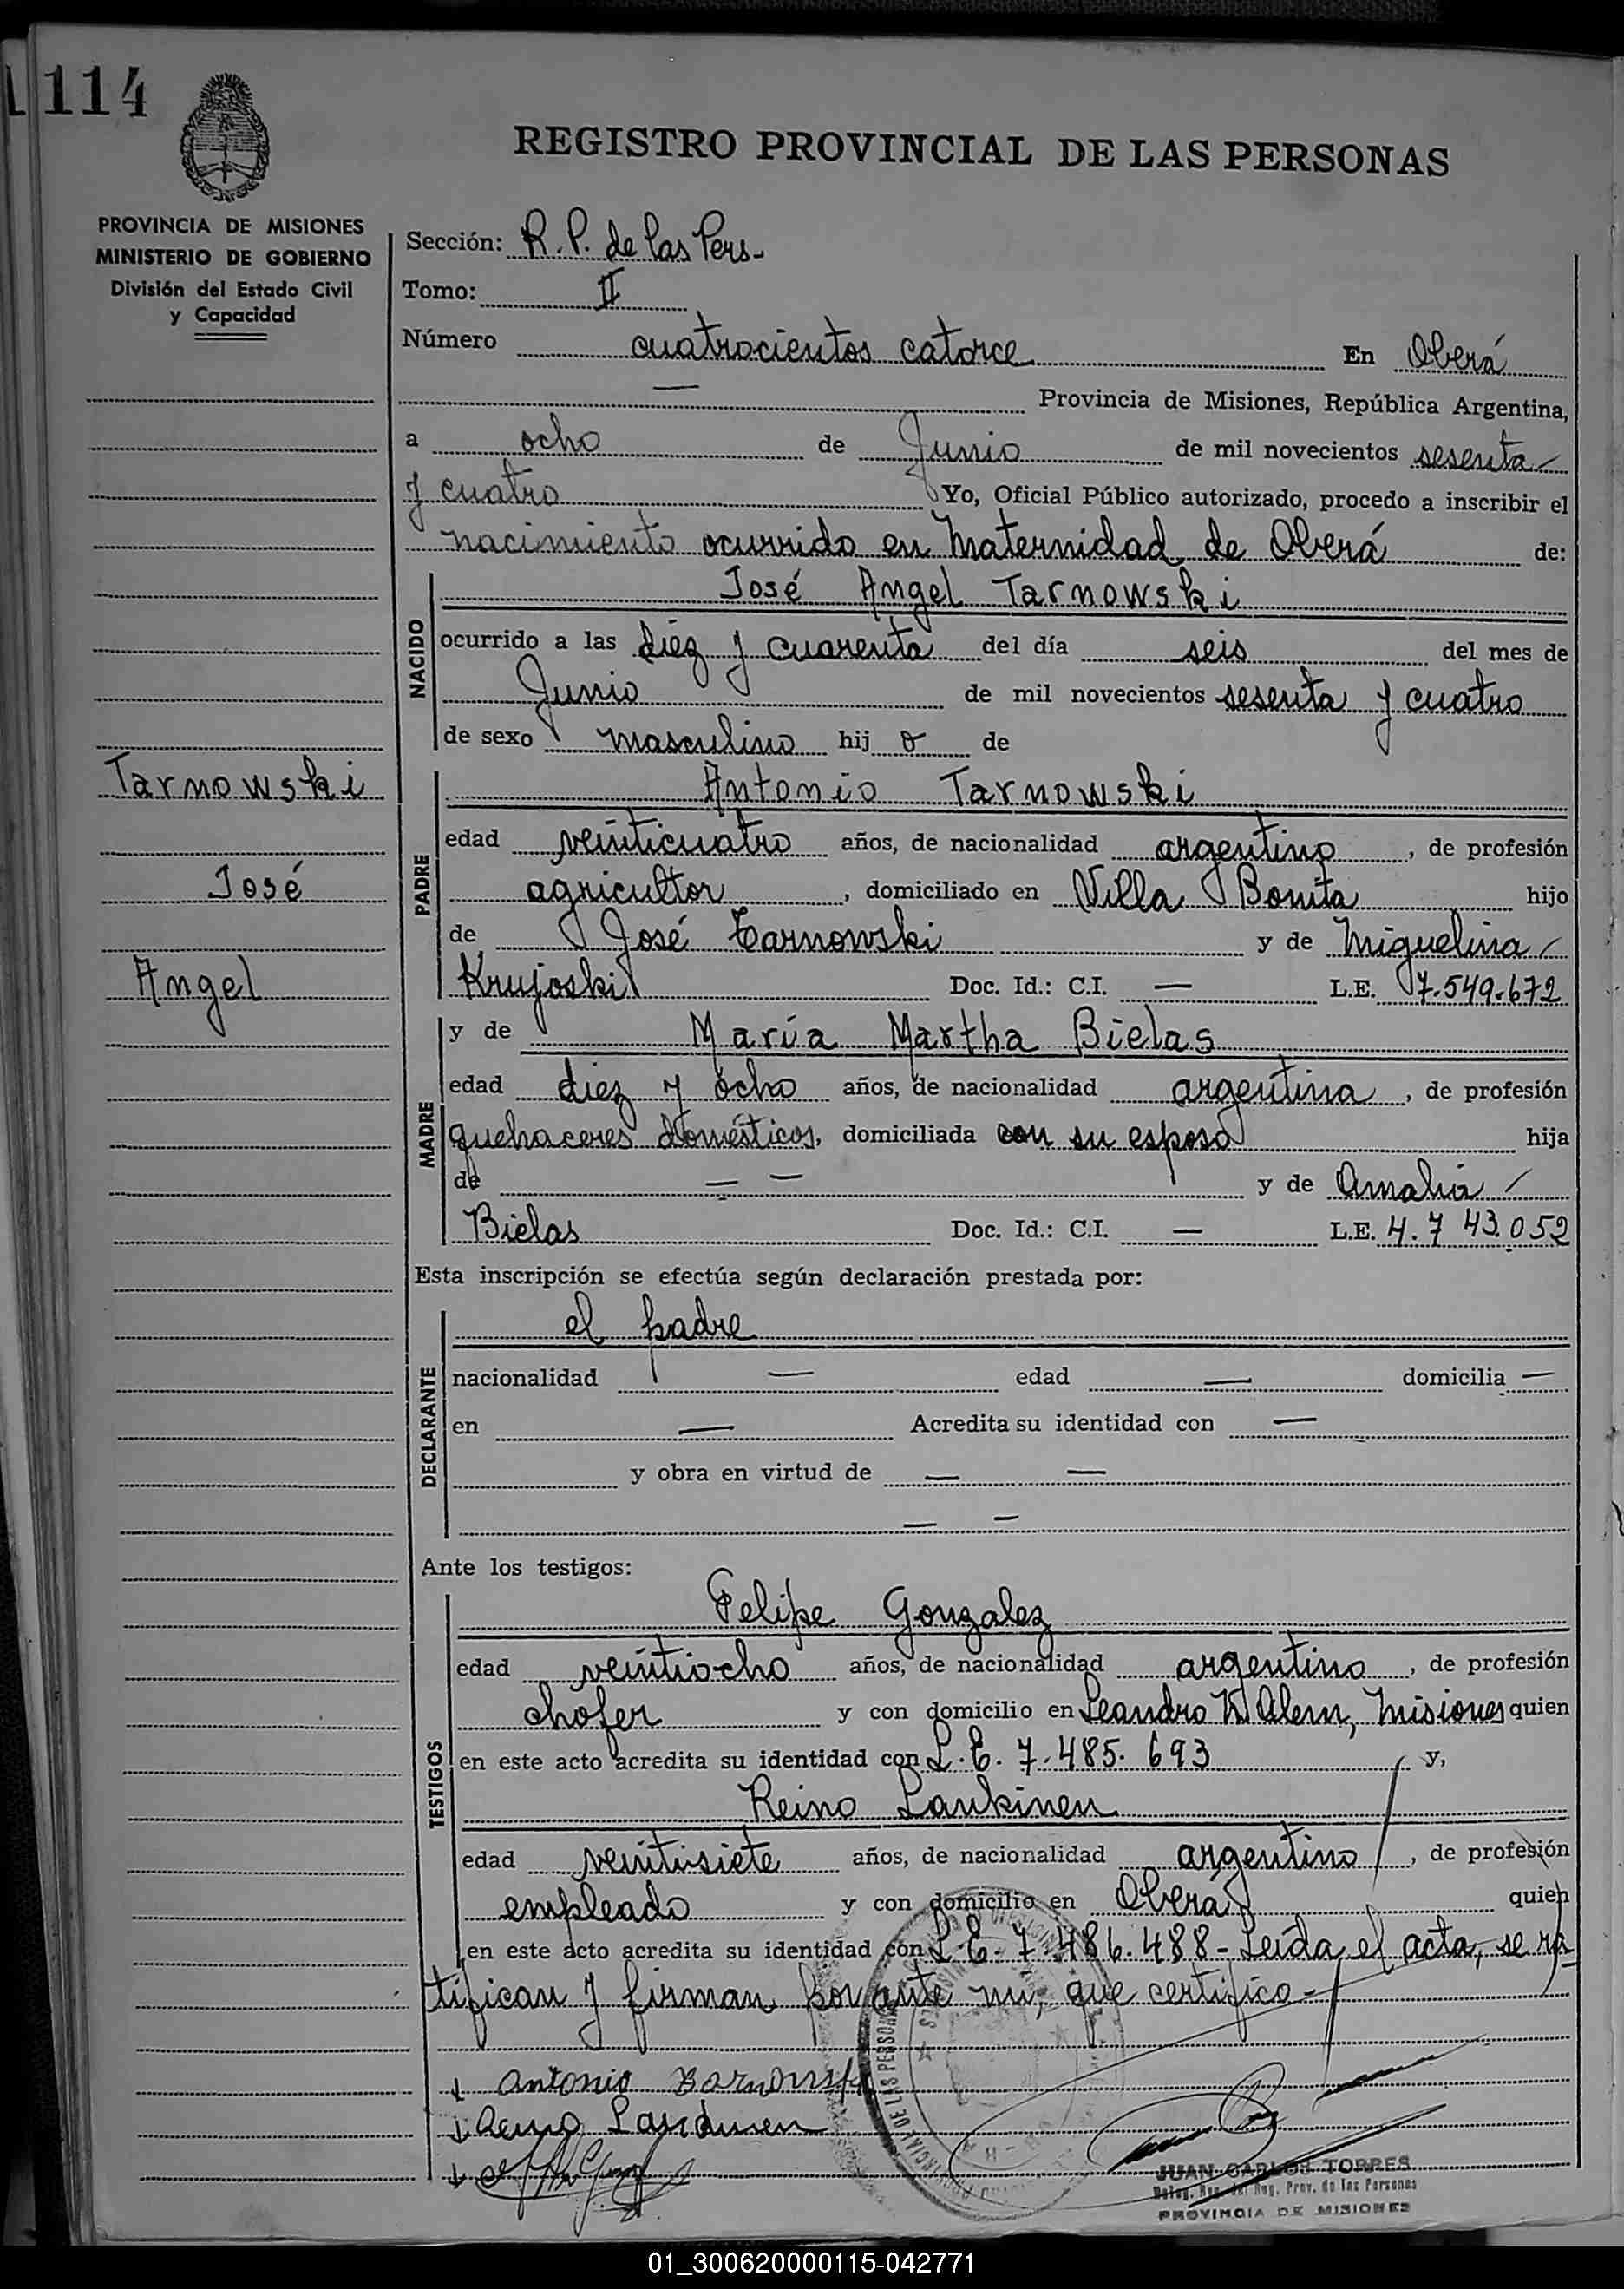 114
REGISTRO PROVINCIAL DE LAS PERSONAS
PROVINCIA DE MISIONES
MINISTERIO DE GOBIERNO
División del Estado Civil
y Capacidad
Sección: R.P. de las Pers-
Tomo: II
Número cuatrocientos catorce En Oberá
— Provincia de Misiones, República Argentina,
a ocho de Junio de mil novecientos sesenta
y cuatro Yo, Oficial Público autorizado, procedo a inscribir el
nacimiento ocurrido en Maternidad de Oberá de:
NACIDO
José Angel Tarnowski
ocurrido a las diez y cuarenta del día seis del mes de
Junio de mil novecientos sesenta y cuatro
de sexo masculino hij o de
Tarnowski
José
Angel
PADRE
Antonio Tarnowski
edad veinticuatro años, de nacionalidad argentino, de profesión
agricultor, domiciliado en Villa Bonita hijo
de José Tarnowski y de Miguelina
Krujoski Doc. Id.: C.I. — L.E. 7.549.672
MADRE
y de María Martha Bielas
edad diez y ocho años, de nacionalidad argentina, de profesión
quehaceres domésticos, domiciliada con su esposo hija
de — — y de Amalia
Bielas Doc. Id.: C.I. — L.E. 4.743.052
Esta inscripción se efectúa según declaración prestada por:
DECLARANTE
el padre
nacionalidad — edad — domicilia —
en — Acredita su identidad con —
y obra en virtud de — —
— —
Ante los testigos:
TESTIGOS
Felipe Gonzalez
edad veintiocho años, de nacionalidad argentino, de profesión
chofer y con domicilio en Leandro N. Alem, Misiones quien
en este acto acredita su identidad con L.E. 7.485.693 y,
Reino Laukinen
edad veintisiete años, de nacionalidad argentino, de profesión
empleado y con domicilio en Oberá quien
en este acto acredita su identidad con L.E. 7.486.488- Leída el acta, se ra-
tifican y firman por ante mí, que certifico-
Antonio Tarnowski
Reino Laukinen
JUAN CARLOS TORRES
Deleg. Reg. del Reg. Prov. de las Personas
PROVINCIA DE MISIONES
01_300620000115-042771